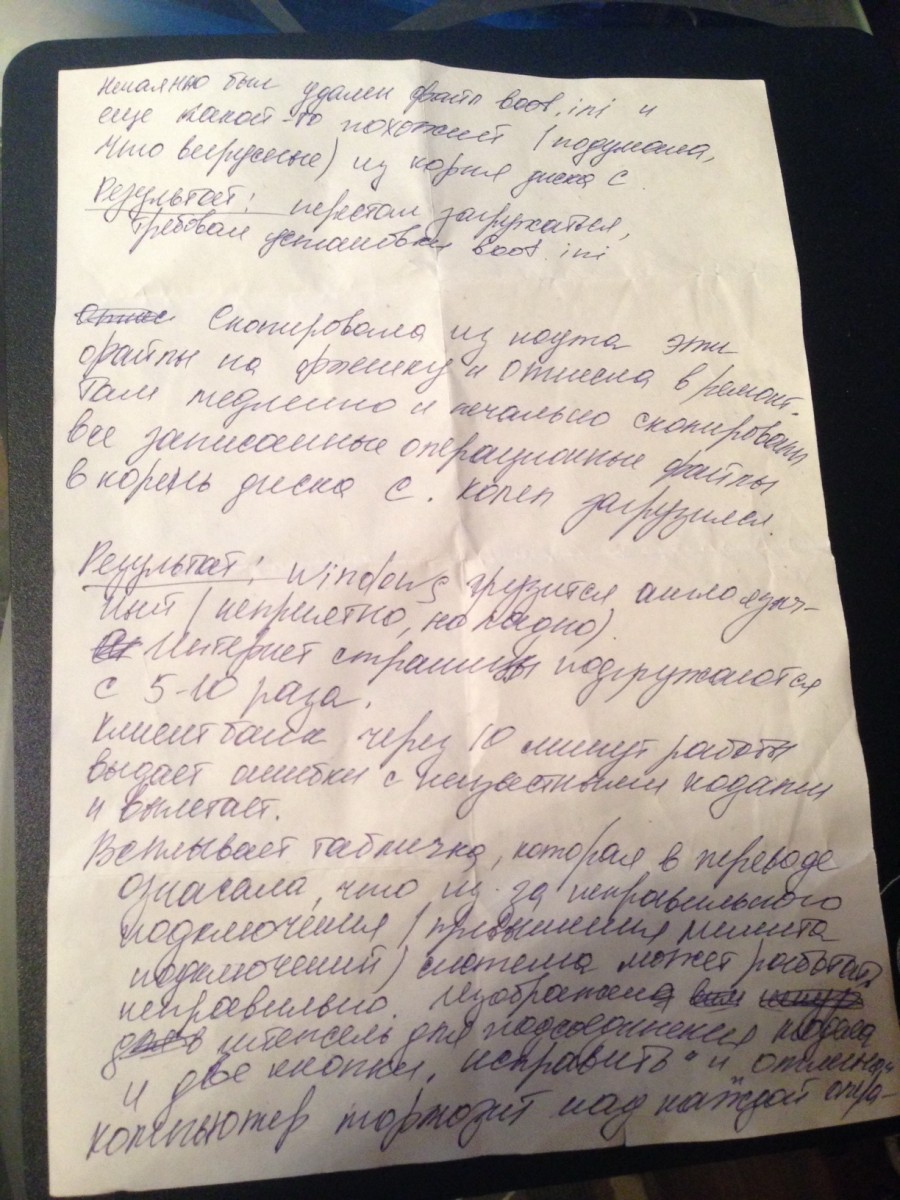 Нечаянно был удален файл boot.ini и
еще какой-то похожий (подумала,
что вирусные) из корня диска С.
Результат: перестал загружаться,
требовал установки boot.ini
Скопировала из ноута эти
файлы на флешку и отнесла в ремонт.
Там медленно и печально скопировали
все записанные операционные файлы
в корень диска С. Копеп загрузился.
Результат: Windows грузится англоязыч-
ный (неприятно, но ладно).
Интернет страницы подгружаются
с 5-10 раза.
Клиент банк через 10 минут работы
выдает ошибки с неизвестными кодами
и вылетает.
Всплывает табличка, которая в переводе
означала, что из-за неправильного
подключения (превышения лимита
подключений) система может работать
неправильно. Изображена
штепсель для подсоединения кабеля
и две кнопки "исправить" и "отмена"
Компьютер тормозит над каждой опера-